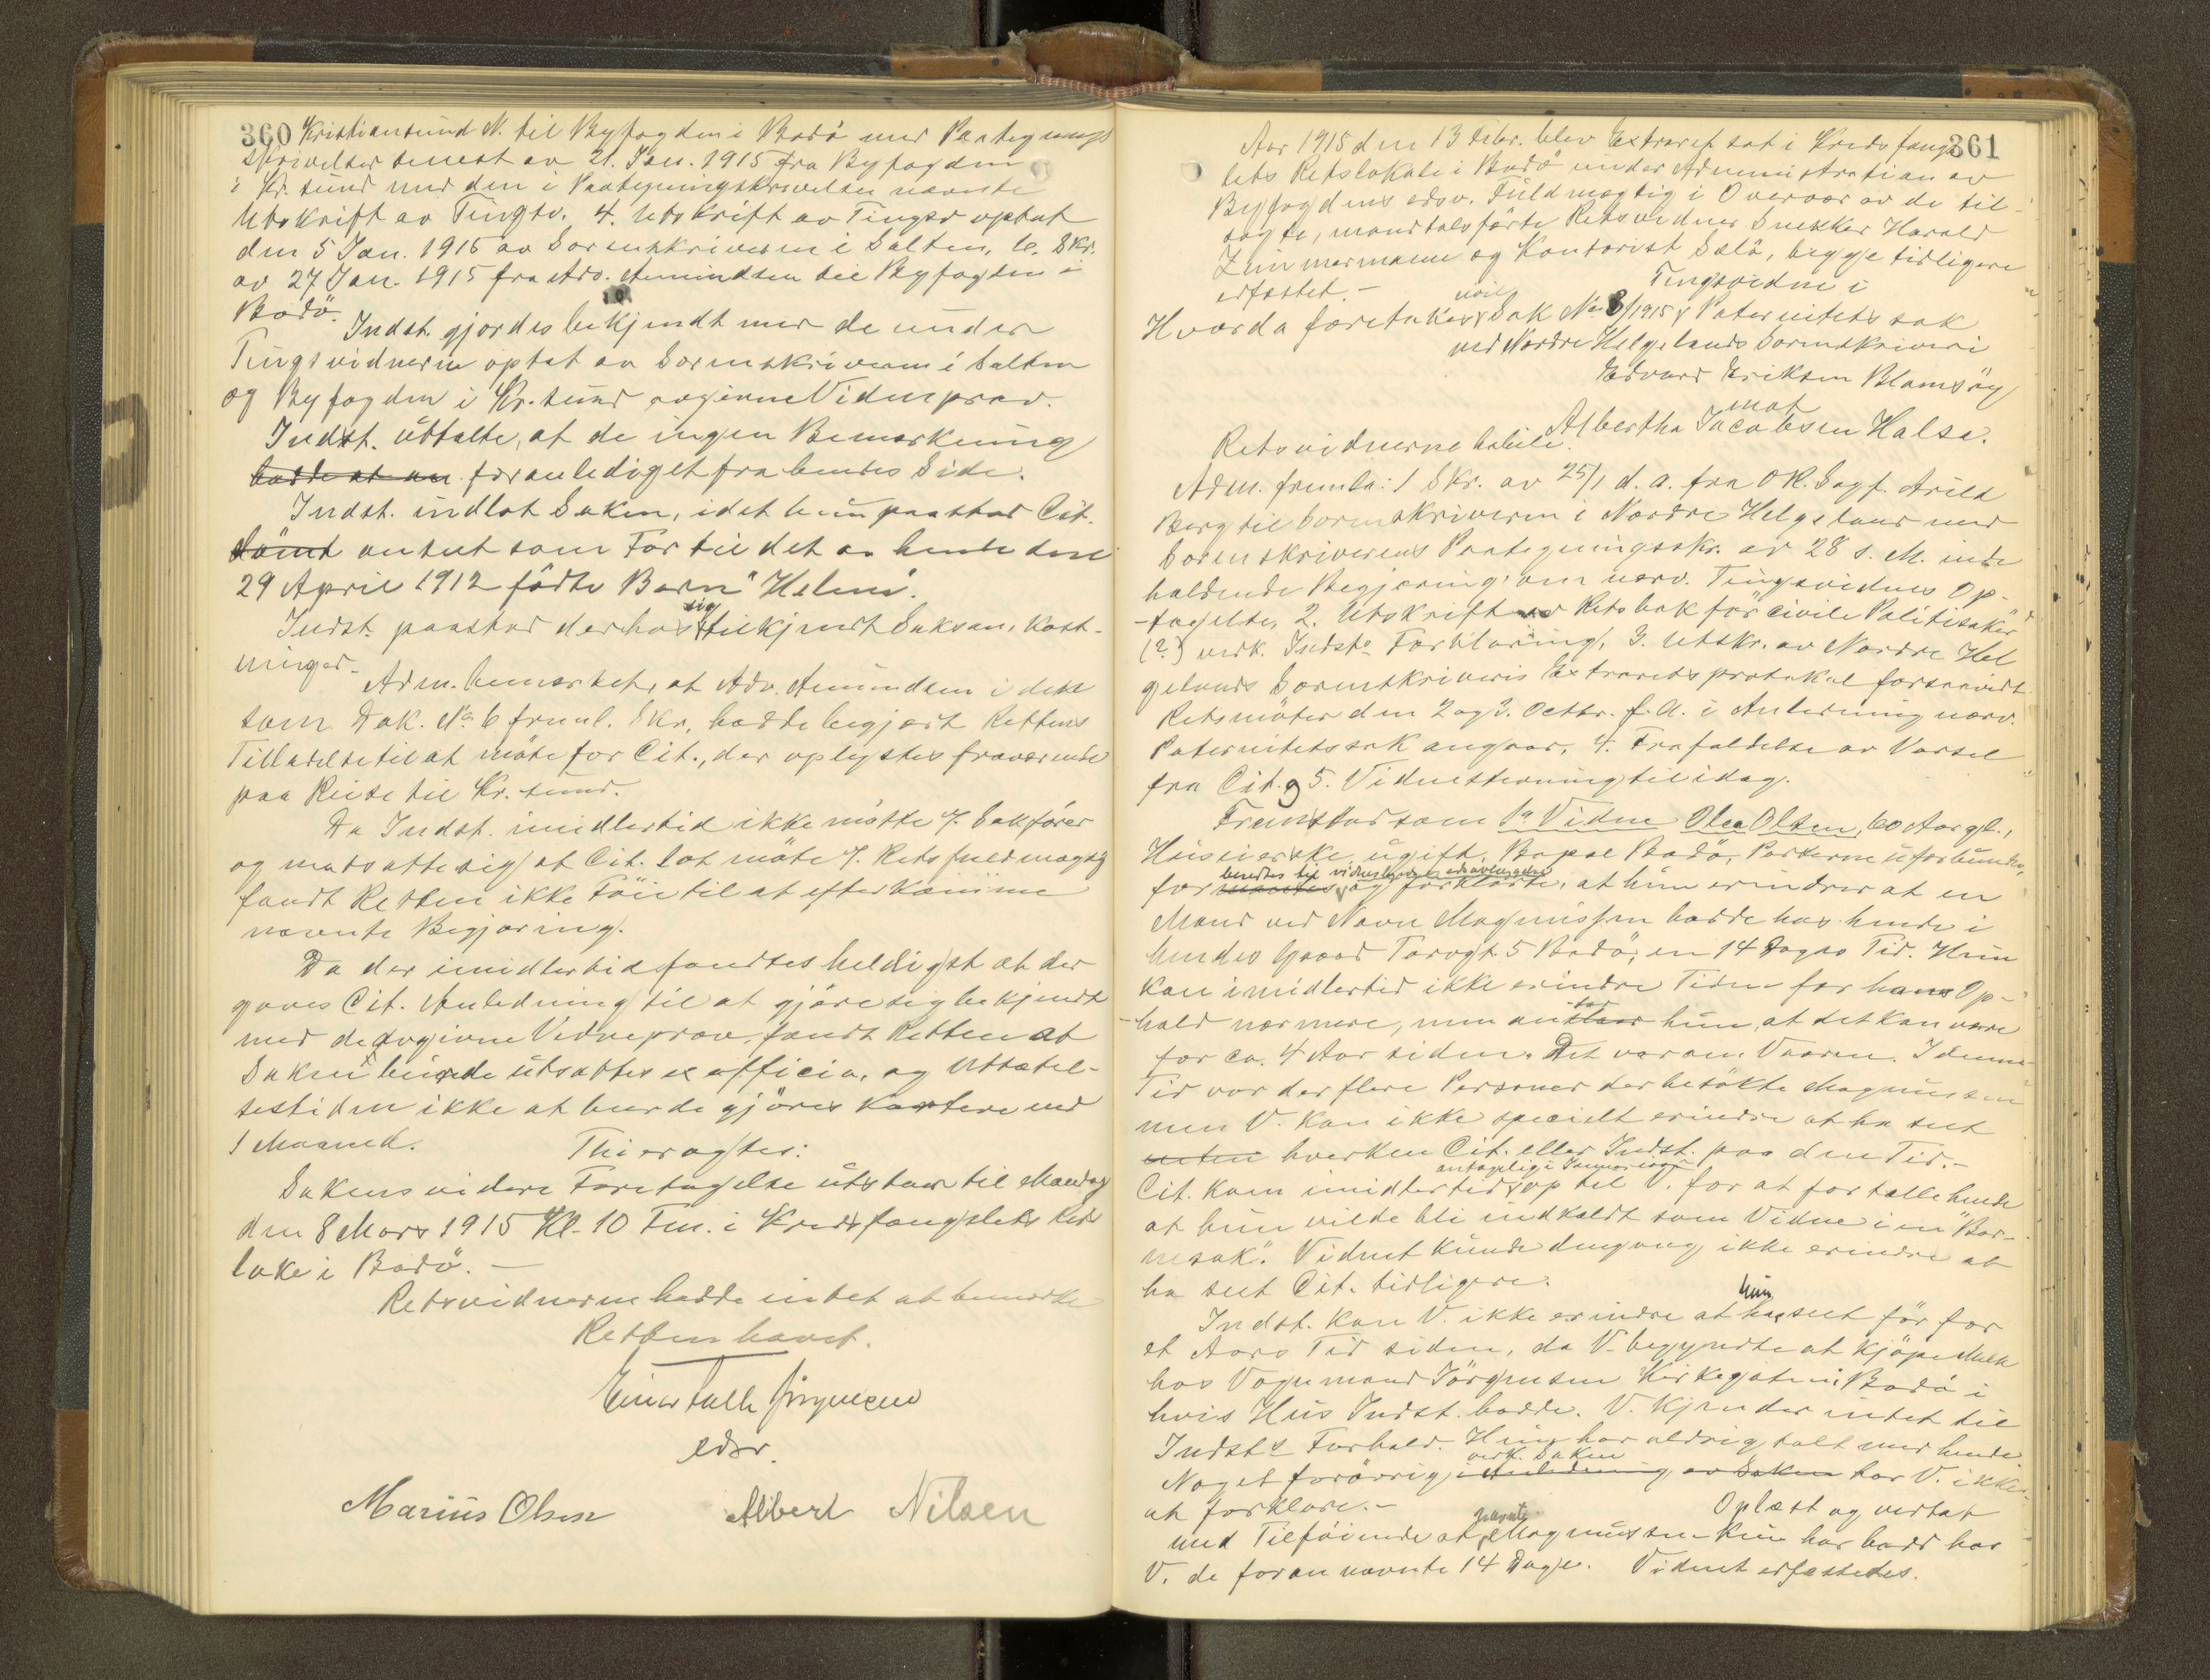 360 Kristiansund N. til Byfogden i Bodö med Paategnings
skrivelser senest av 21. Jan. 1915 fra Byfogden
i Kr. sund med den i Paategningskrivelsen nævnte
Utskrift av Tingsv. 4. Utskrift av Tingsv optat
den 5 Jan. 1915 av Sorenskriveren i Salten, 6. Skr.
av 27 Jan. 1915 fra Adv. Amundsen til Byfogden i
Bodö.
Indst. gjordes bekjendt med de under
Tingsvidnerne optat av Sorenskriveren i Salten
og Byfogden i Kr. sund avgivne Vidneprov.
Indst. uttalte, at de ingen Bemerkning
hadde at an foranlediget fra hendes Side.
Indst. indlot Saken, idet hun paastod Cit.
dömt anseet som Far til det av hende den
29 April 1912 födte Barn "Helene".
Indst. paastod derhos sig tilkjendt Saksom. kost-
ninger.
Adm. bemerket, at Adv. Amundsen i det
som Dok. No 6 freml. Skr. hadde begjært Rettens
Tilladelse til at möte for Cit., der oplystes fraværende
paa Reise til Kr. sund.
Da Indst. imidlertid ikke mötte v. Sakförer
og motsatte sig at Cit. lot möte v. Retsfuldmægtig
fandt Retten ikke Föie til at efterkomme
nævnte Begjæring.
Da det imidlertid fandtes heldigst at der
gaves Cit. Anledning til at gjöre sig bekjendt
med de avgivne Vidneprov, fandt Retten at
Saken burde utsattes ex officio, og Utsættel-
sestiden ikke at burde gjöres kortere end
1 Maaned.
Thi eragtes:
Sakens videre Foretagelse utstaar til Mandag
den 8 Mars 1915 Kl. 10 Fm. i Kredsfængslets Rets
lokale i Bodö. —
Retsvidnerne hadde intet at bemerke
Retten hævet.
Einar Falck Jörgensen
edsv.
Marius Olsen Albert Nilsen
361
Aar 1915 den 13 Febr. blev Extraret sat i Kredsfængs
lets Retslokale i Bodö under Administration av
Byfogdens edsv. Fuldmægtig i Overvær av de til-
sagte, mandtalsförte Retsvidner Snekker Harald
Zimmermann og Kontorist Salö, begge tidligere
edfæstet. —
Hvorda foretokes civil Sak No 8/1915: Tingsvidne i Paternitetssak
ved Nordre Helgelands Sorenskriveri
Edvard Eriksen Blomsöy
mot
Albertha Jacobsen Halse.
Retsvidnerne habile.
Adm. fremla: 1 Skr. av 25/1 d. a. fra O.R. Sagf. Arild
Berg til Sorenskriveren i Nordre Helgeland med
Sorenskriverens Paategningsskr. av 28 s. M. inde
holdende Begjæring om nærv. Tingsvidnes Op-
tagelse, 2. Utskrift av Retsbok for "civile Politisaker"
(?) vedk. Indsts Forklaring, 3. Utskr. av Nordre Hel
gelands Sorenskriveris Extraretsprotokol forsaavidt
Retsmöter den 2 og 3. Octbr. f. A. i Anledning nærv.
Paternitetssak angaar, 4. Frafaldelse av Varsel
fra Cit. og 5. Vidnestevning til idag.
Fremstod som 1ste Vidne Olea Olsen, 60 Aar gl.,
Huseierske, ugift, Bopæl Bodö, Parterne uforbunden,
formantes beredtes til vidneslig edsavlæggelse og forklarte, at hun erindrer at en
Mand ved Navn Magnussen bodde hos hende i
hendes Gaard Torvgt. 5 Bodö, en 14 Dages Tid. Hun
kan imidlertid ikke erindre Tiden for hans Op-
hold nærmere, men antar hun, at det kan være
for ca. 4 Aar siden. Det var om Vaaren. I denne
Tid var der flere Personer der besökte Magnussen
men V. kan ikke specielt erindre at ha seet
enten hverken Cit. eller Indst. paa den Tid. —
Cit. kom imidlertid antagelig i Januar iaar op til V. for at fortælle hende
at hun vilde bli indkaldt som Vidne i en "Bar-
nesak". Vidnet kunde dengang ikke erindre at
ha seet Cit. tidligere.
Indst. kan V. ikke erindre at hun ha seet för for
et Aars Tid siden, da V. begyndte at kjöpe Melk
hos Vognmand Jörgensen Kirkegaten i Bodö i
hvis Hus Indst. bodde. V. kjender intet til
Indsts Forhold. Hun har aldrig talt med hende.
Noget forövrig i Anledning av Saken vedk. Saken har V. ikke
at forklare. — Oplæst og vedtat
med Tilföiende at nævnte Magnussen kun har bodd hos
V. de foran nævnte 14 Dage. Vidnet edfæstedes.